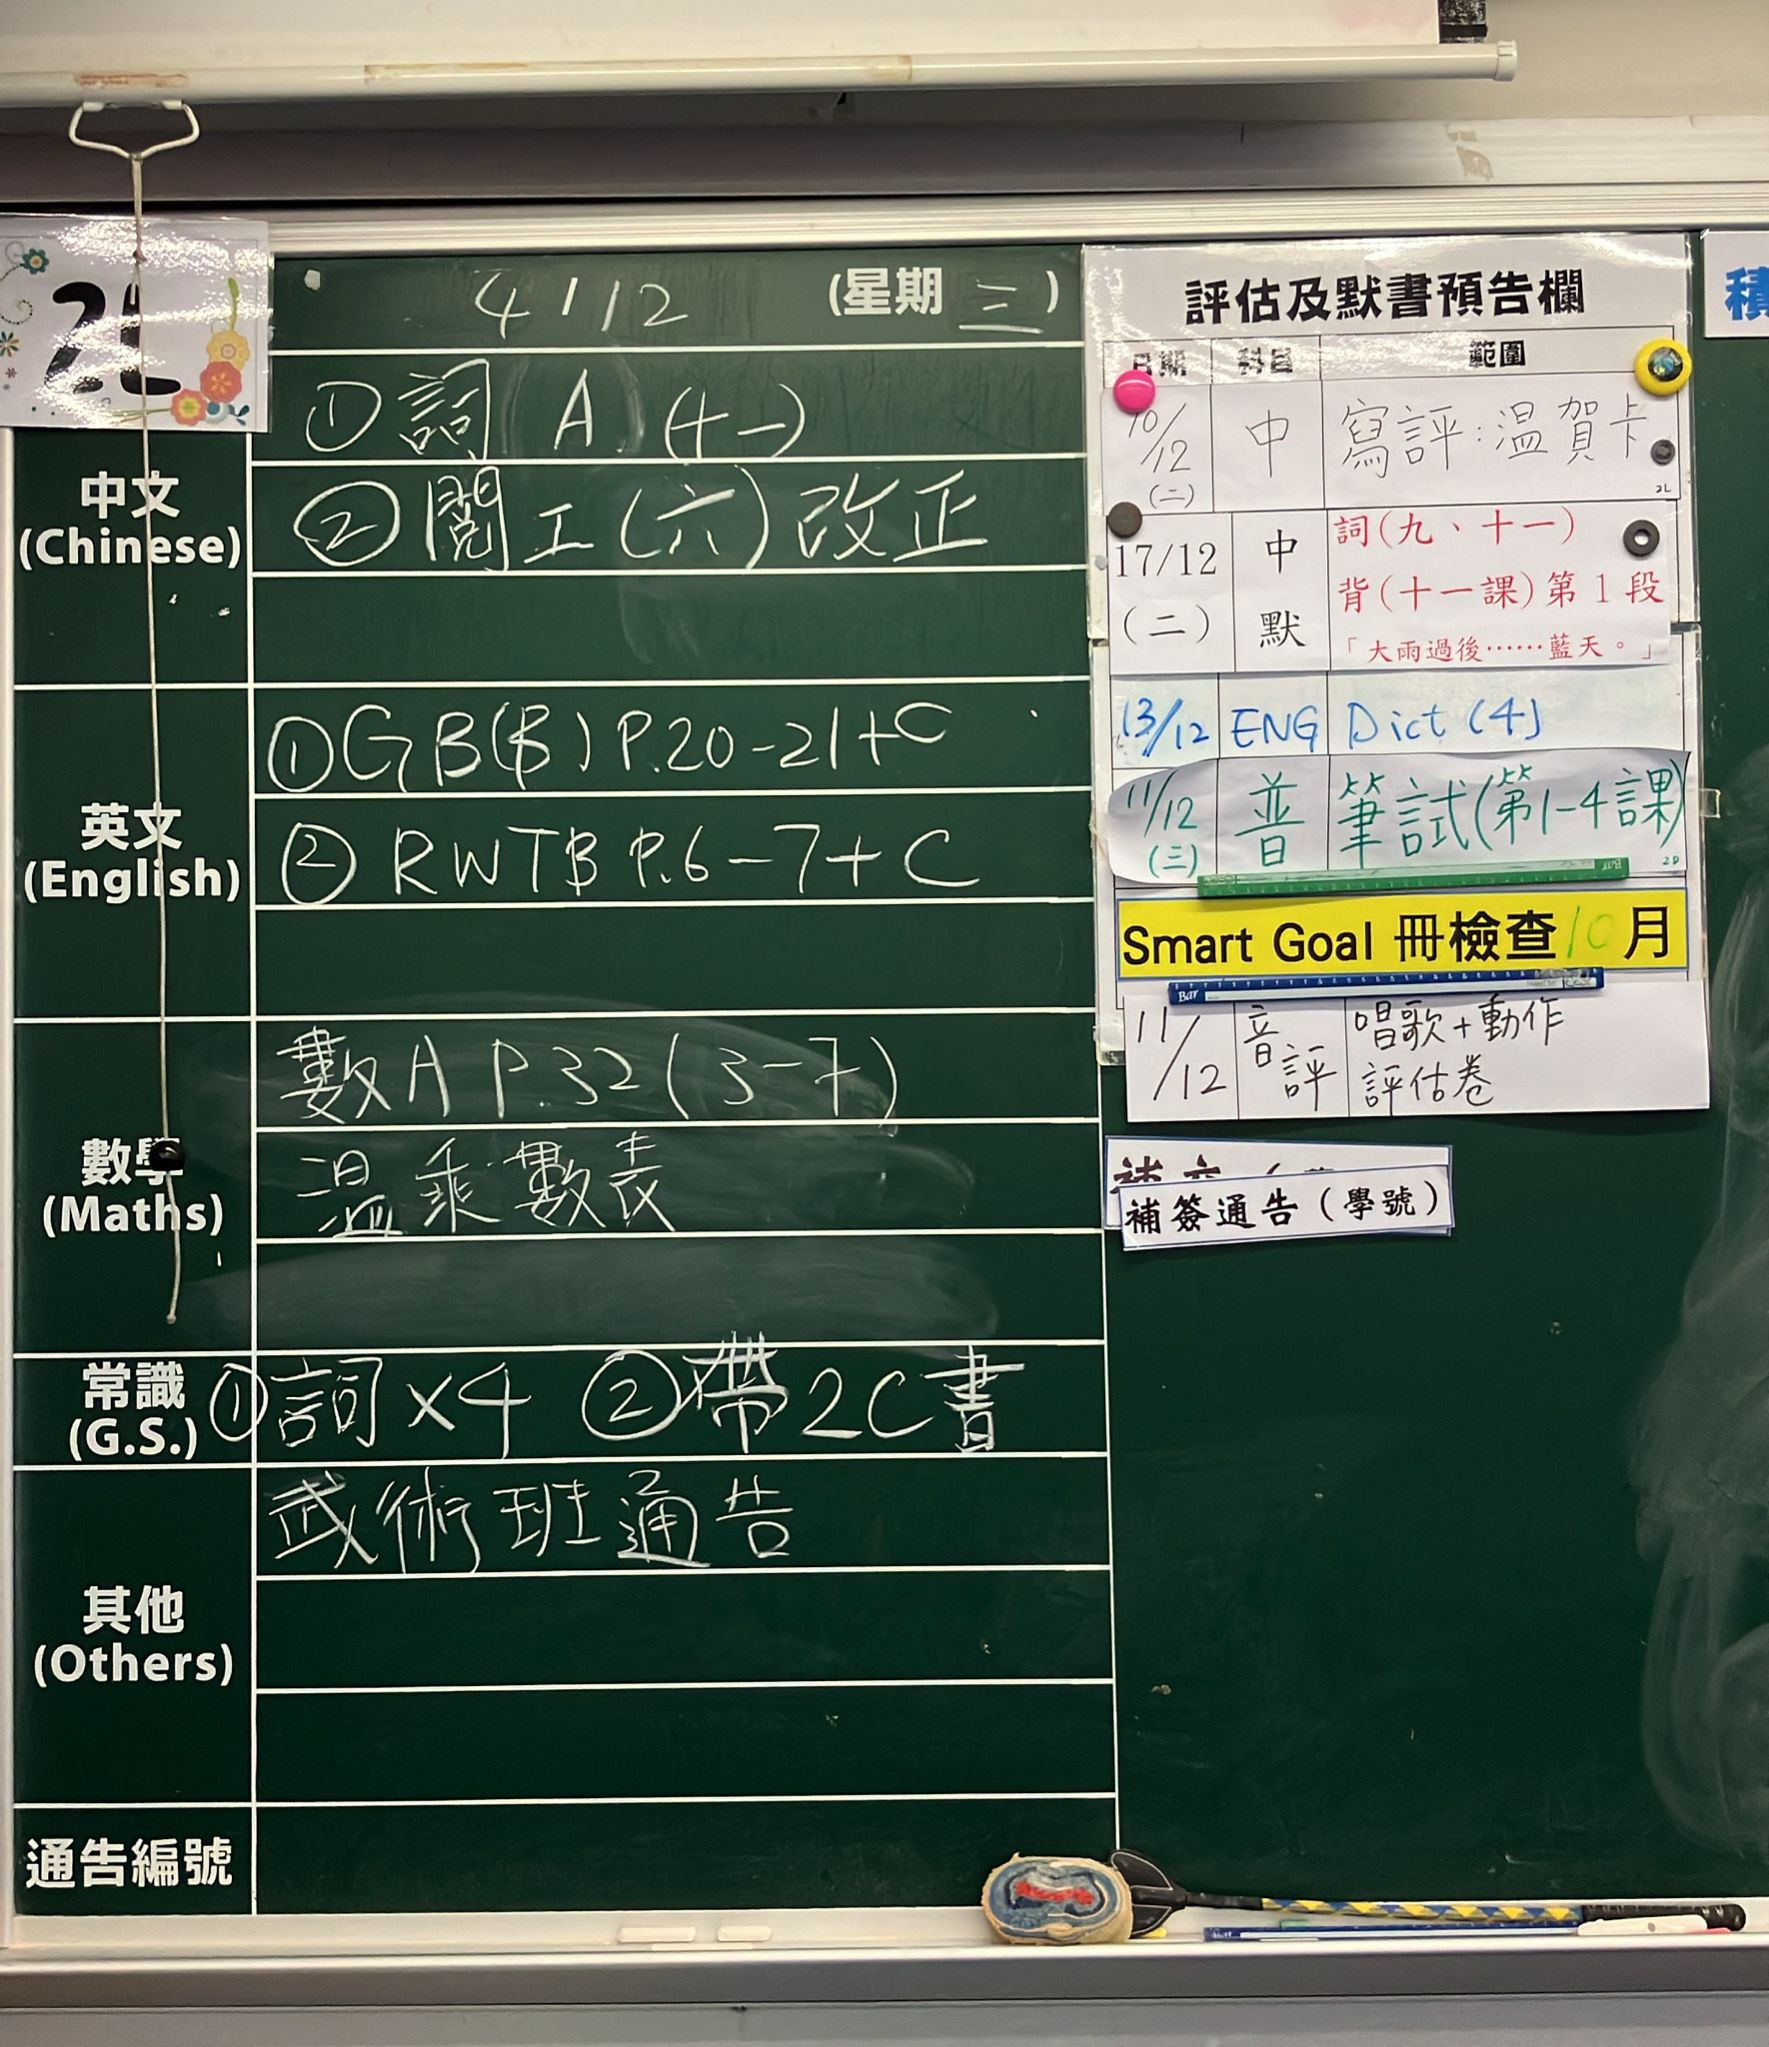 2L
4/12 (星期三)
中文
(Chinese)
①詞 A (十一)
②閱工(六)改正
英文
(English)
①GB(B) P.20-21+C
②RWTB P.6-7+C
數學
(Maths)
數A P.32(3-7)
溫乘數表
常識
(G.S.)
①詞x4 ②帶2C書
其他
(Others)
武術班通告
通告編號
評估及默書預告欄
日期 科目 範圍
10/12 (二) 中 寫評:溫賀卡
2L
17/12 (二) 中默 詞(九、十一)
背(十一課)第1段
「大雨過後……藍天。」
13/12 ENG Dict (4)
11/12 (三) 普 筆試(第1-4課)
2D
Smart Goal 冊檢查10月
11/12 音評 唱歌+動作
評估卷
補簽通告(學號)
積